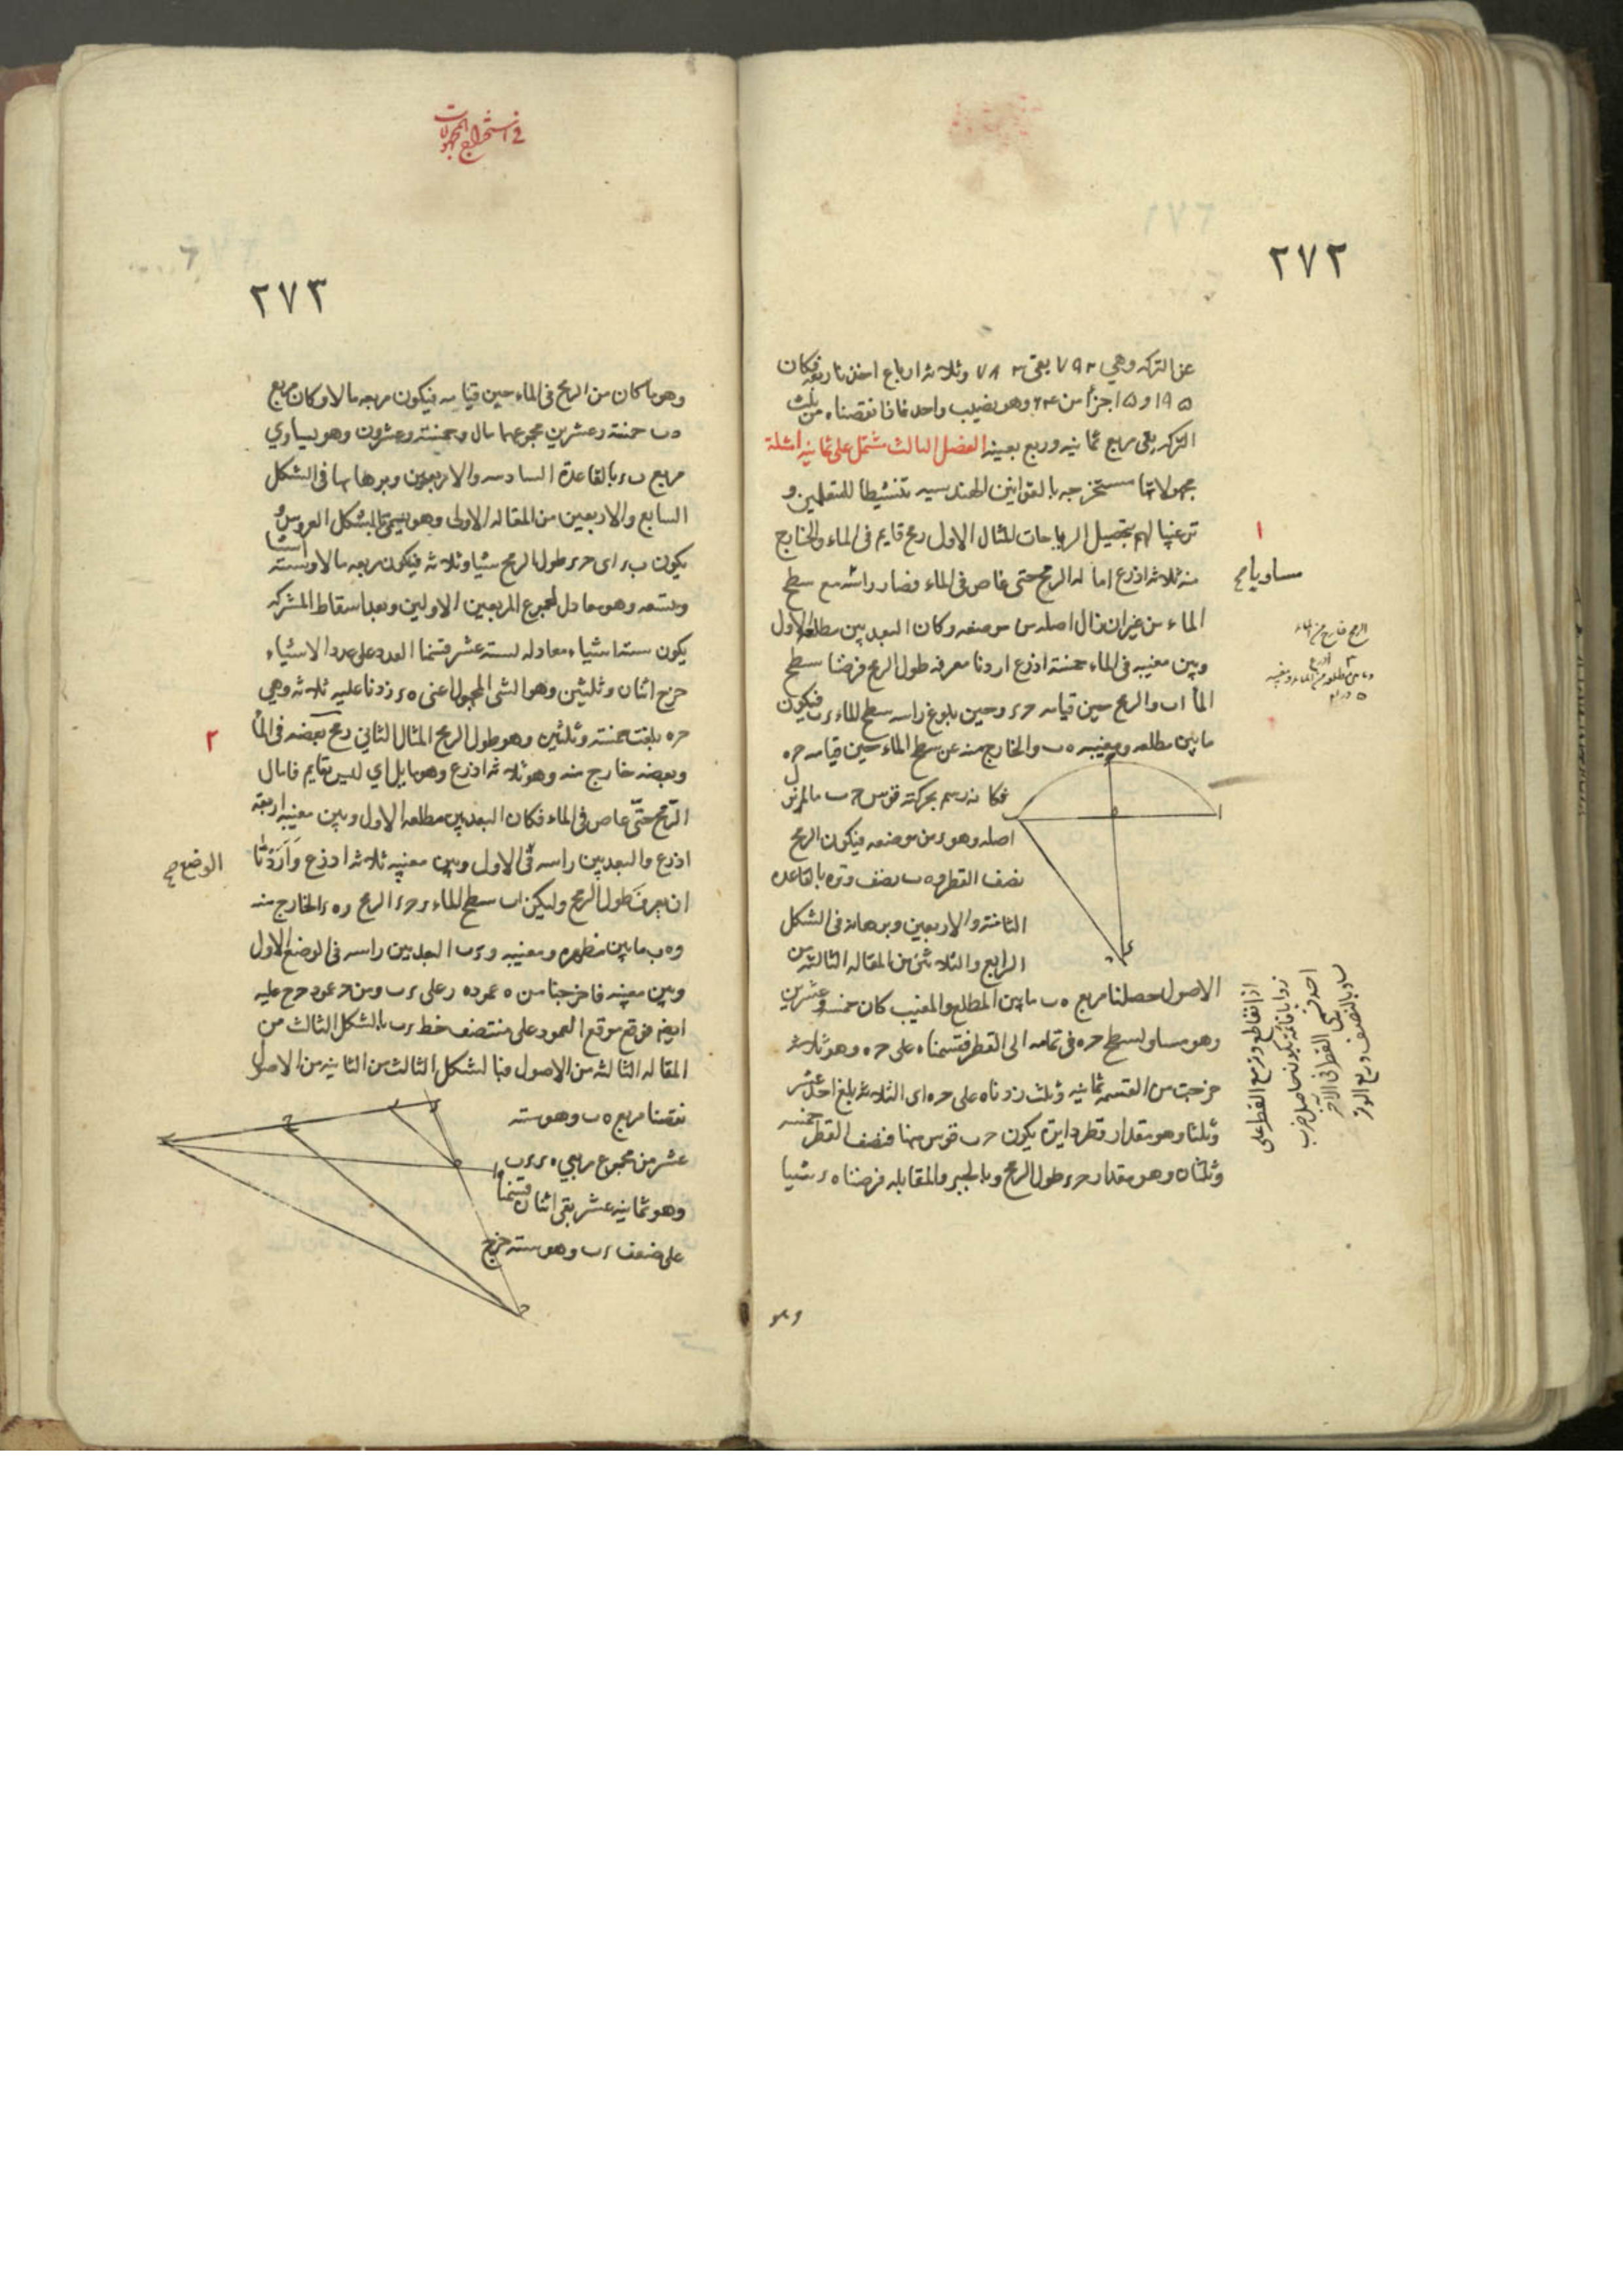 ٢٧٢
عن التركه وهي ٧٩٢ بقي ٧٨٢ وثلاثة ارباع اخذنا ربعه فكان
١٩٥ و١٥ جزأ من ٦٤ وهو نصيب واحد فاذا نقصناه من ثلث
التركه بقي ربع ثمانيه وربع بعينه الفصل الثالث مشتمل على ثمانيه امثلة
مجهولاتها مستخرجه بالقوانين الهندسيه تنشيطا للمتعلمين و
ترغيبا لهم بتحصيل الرياضات المثال الاول رمح قايم فى الماء والخارج
منه ثلاثه اذرع اماله الريح حتى غاص فى الماء وصار راسه مع سطح
الماء من غير ان زال اصله من موضعه وكان البعد بين مطلعه الاول
وبين مغيبه فى الماء خمسة اذرع اردنا معرفه طول الرمح فرضنا سطح
الما اب والرمح حين قيامه حء وحين بلوغ راسه سطح الماء ءب فيكون
ما بين مطلعه ومغيبه ه ب والخارج منه عن سطح الماء حين قيامه حه
فكانه رسم بحركته قوس ح ب
اصله وهو ء من موضعه فيكون الرمح
نصف القطر و ه ب نصف وتره بالقاعده
الثامنة والاربعين وبرهانه فى الشكل
الرابع والثلاثين من المقاله الثالثه من
الاصول حصلنا مربع ه ب ما بين المطلع والمغيب كان خمسه وعشرين
وهو مساو لسطح حه فى تمامه الى القطر فقسمناه على حه وهو ثلاثه
خرجت من القسمه ثمانيه وثلث زدناه على حه اى الثلاثه بلغ احد عشر
وثلثا وهو مقدار قطر دايرة يكون ح ب قوس منها فنصف القطر خمسه
وثلثان وهو مقدار حء طول الرمح وبالجبر والمقابله فرضنا ه ء شيئا
وهو
١
مساويا صح
فى استخراج المجهولات
٢٧٣
وهو ما كان من الرمح فى الماء حين قيامه فيكون مربعه مالا وكان مربع
ه ب خمسة وعشرين مجموعهما مال وخمسة وعشرون وهو يساوي
مربع ب ء بالقاعدة السادسه والاربعين وبرهانها فى الشكل
السابع والاربعين من المقاله الاولى وهو يسمى بالشكل العروس
يكون ب ء اى حء طول الرمح شيئا وثلاثه فيكون مربعه مالا وسته اشيا
وتسعه وهو معادل لمجموع المربعين الاولين وبعد اسقاط المشترك
يكون سته اشياء معادله لسته عشر قسمنا العدد على عدد الاشياء
خرج اثنان وثلثين وهو الشى المجهول اعنى ه ء زدنا عليه ثلاثه وهى
حه بلغت خمسة وثلثين وهو طول الرمح المثال الثاني رمح بعضه فى الما
وبعضه خارج منه وهو ثلاثه اذرع وهو مايل اي ليس بقايم فامال
الريح حتى غاص فى الماء فكان البعد بين مطلعه الاول وبين مغيبه اربعة
اذرع والبعد بين راسه فى الاول وبين مغيبه ثلاثه اذرع وَاَرَدْنَا
ان نعرف طول الرمح وليكن اب سطح الماء و حء الرمح و ه ء الخارج منه
و ه ب ما بين مظهره ومغيبه و ء ب البعد بين راسه فى الوضع الاول
وبين مغيبه فاخرجنا من ه عمود ه ر على ء ب ومن ح عمود ح ح عليه
ايضه فوقع موقع العمود على منتصف خط ء ب بالشكل الثالث من
المقاله الثالثه من الاصول فبالشكل الثالث من الثانيه من الاصول
نقصنا مربع ه ب وهو سته
عشر من مجموع مربعي ه ء ء ب
وهو ثمانيه عشر بقى اثنان قسمنا
على ضعف ء ب وهو سته خرج
٢
الوضع صح